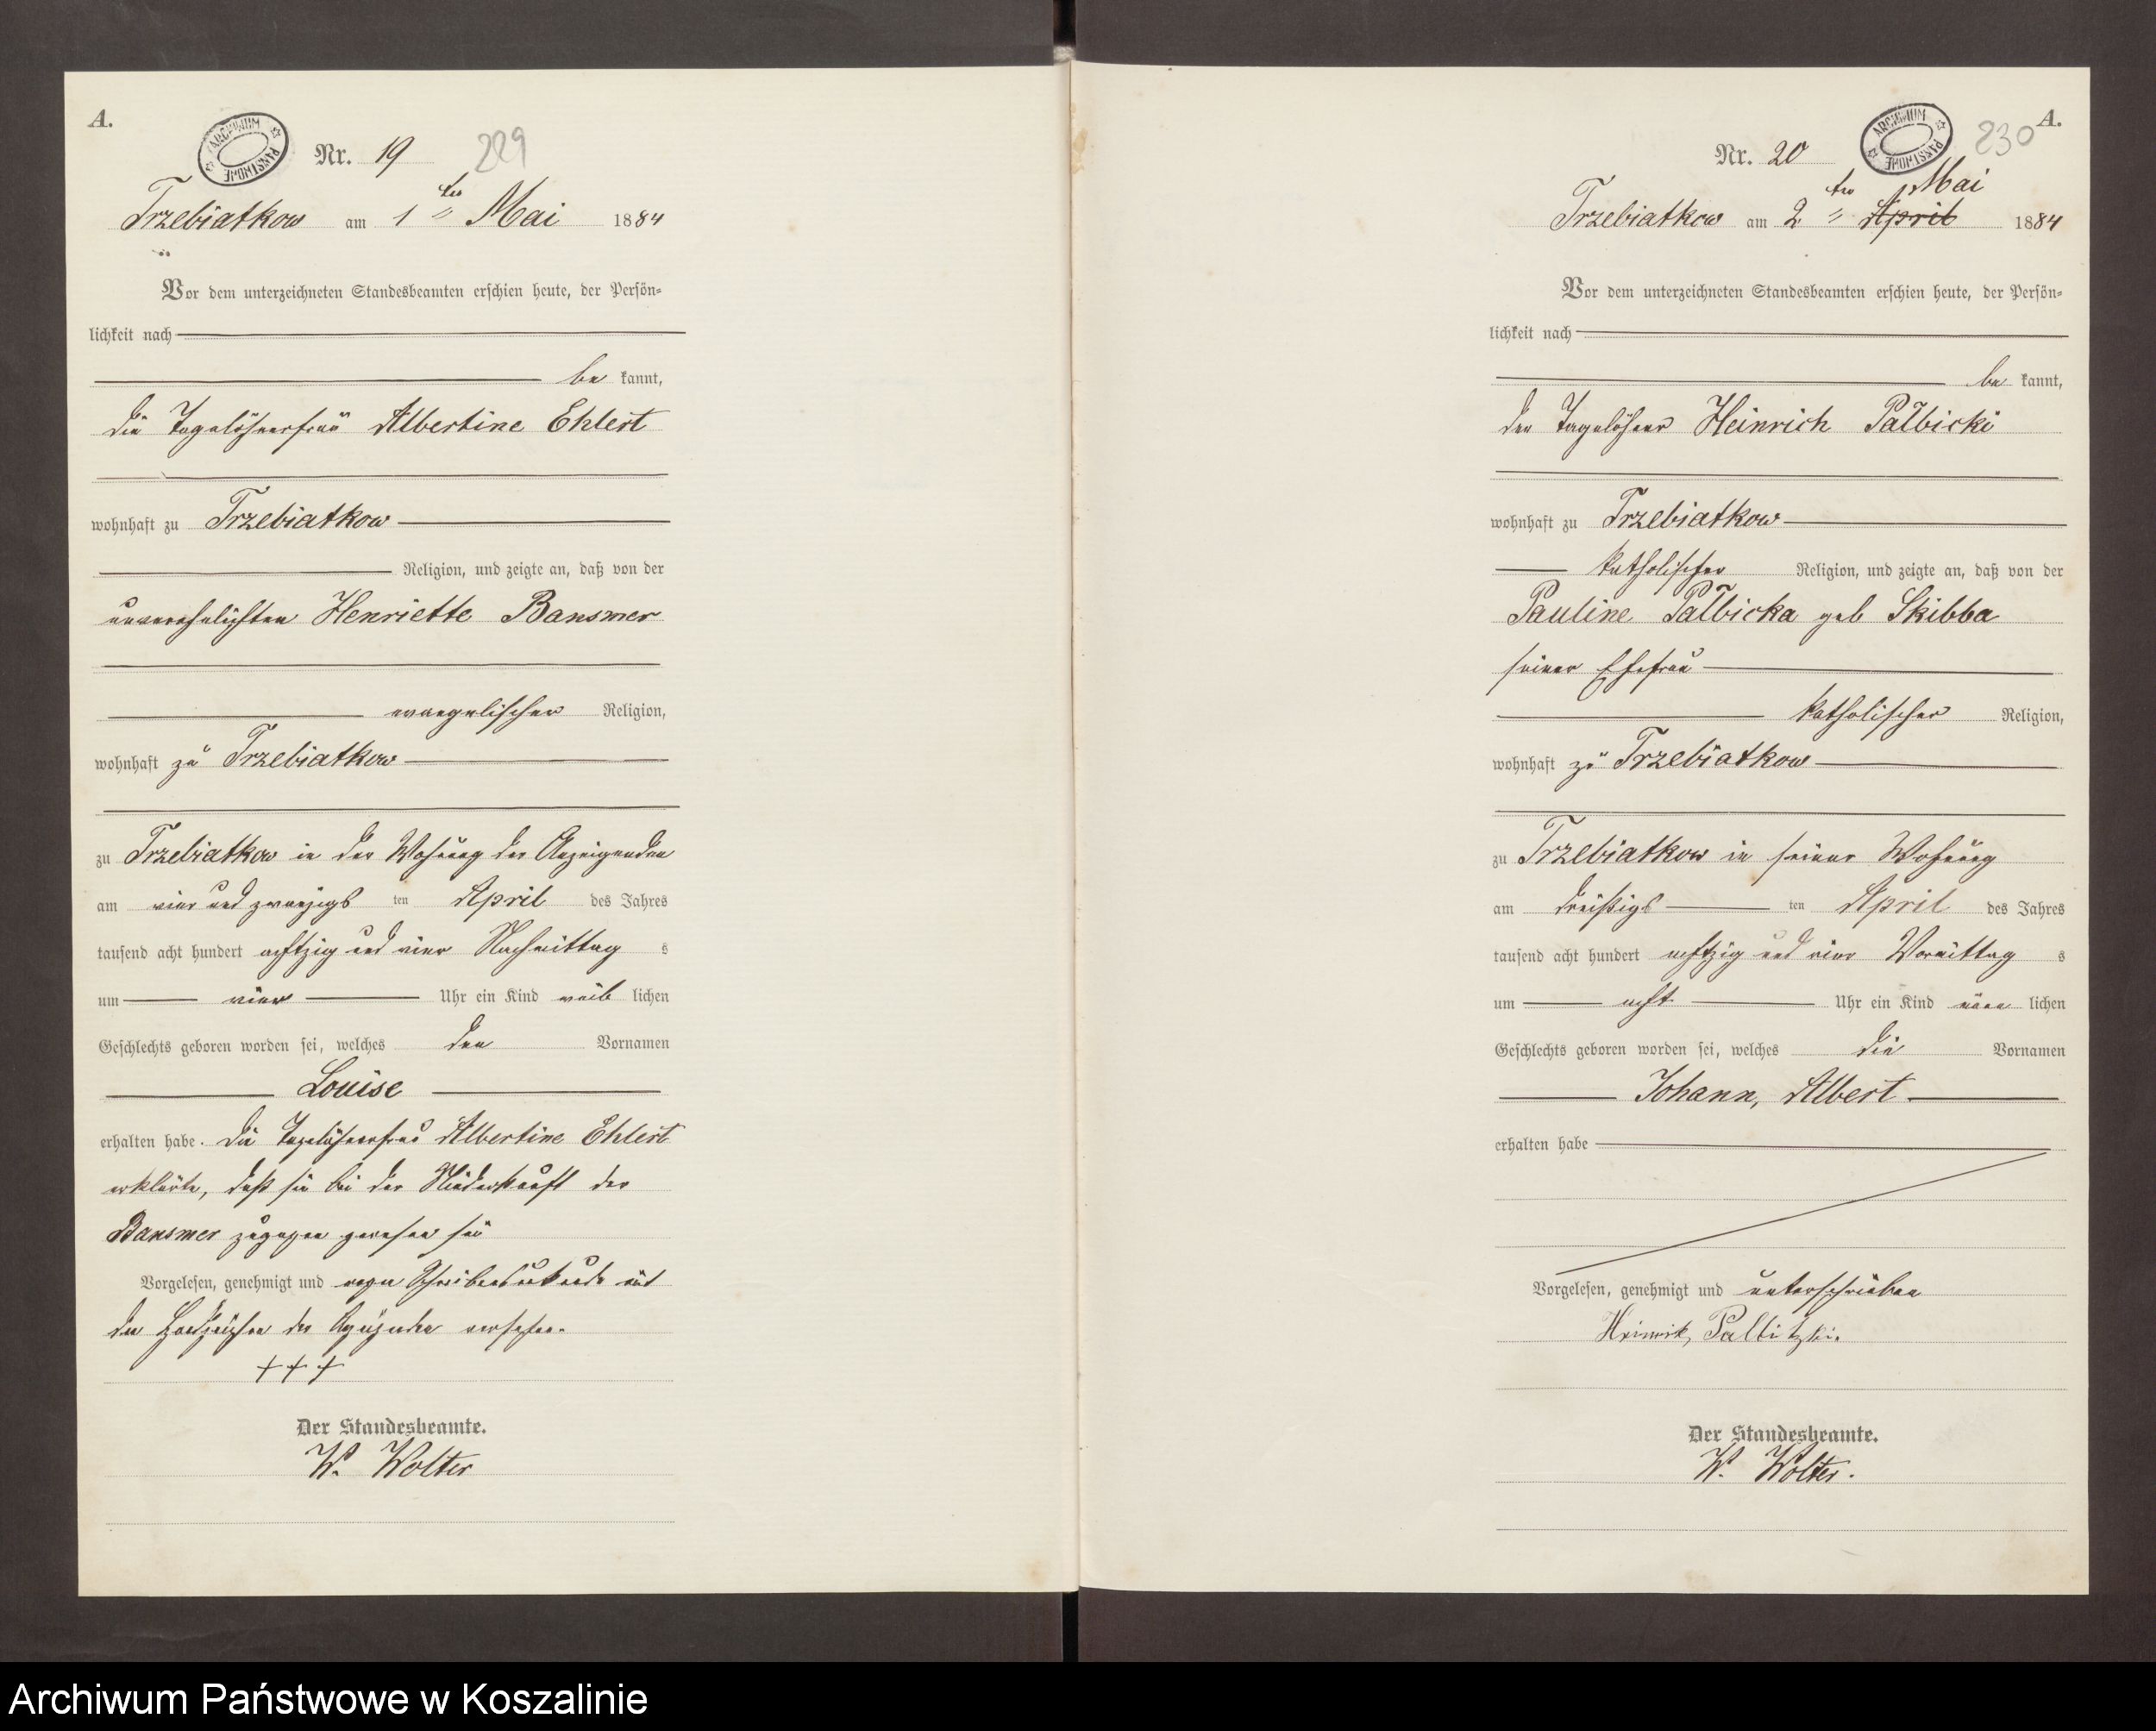 A.
ARCHIWUM PAŃSTWOWE
Nr. 19
229
Trzebiatkow am 1ten Mai 1884
Vor dem unterzeichneten Standesbeamten erschien heute, der Persön-
lichkeit nach
be kannt,
die Tagelöhnerfrau Albertine Ehlert
wohnhaft zu Trzebiatkow
Religion, und zeigte an, daß von der
unverehelichten Henriette Bansmer
evangelischer Religion,
wohnhaft zu Trzebiatkow
zu Trzebiatkow in der Wohnung der Anzeigenden
am vier und zwanzigs ten April des Jahres
tausend acht hundert achtzig und vier Nachmittag s
um vier Uhr ein Kind weib lichen
Geschlechts geboren worden sei, welches den Vornamen
Louise
erhalten habe. Die Tagelöhnerfrau Albertine Ehlert
erklärte, daß sie bei der Niederkunft der
Bansmer zugegen gewesen sei
Vorgelesen, genehmigt und wegen Schreibensunkunde mit
den Handzeichen der versehen.
+++
Der Standesbeamte.
W. Wolter
A.
ARCHIWUM PAŃSTWOWE
Nr. 20
230
Mai
Trzebiatkow am 2ten April 1884
Vor dem unterzeichneten Standesbeamten erschien heute, der Persön-
lichkeit nach
be kannt,
der Tagelöhner Heinrich Pałbicki
wohnhaft zu Trzebiatkow
katholischer Religion, und zeigte an, daß von der
Pauline Pałbicka geb Skibba
seiner Ehefrau
katholischer Religion,
wohnhaft zu Trzebiatkow
zu Trzebiatkow in seiner Wohnung
am dreißigs ten April des Jahres
tausend acht hundert achtzig und vier Vormittag s
um acht Uhr ein Kind männ lichen
Geschlechts geboren worden sei, welches die Vornamen
Johann, Albert
erhalten habe
Vorgelesen, genehmigt und unterschrieben
Heinrik, Palbitzki.
Der Standesbeamte.
W. Wolter.
Archiwum Państwowe w Koszalinie